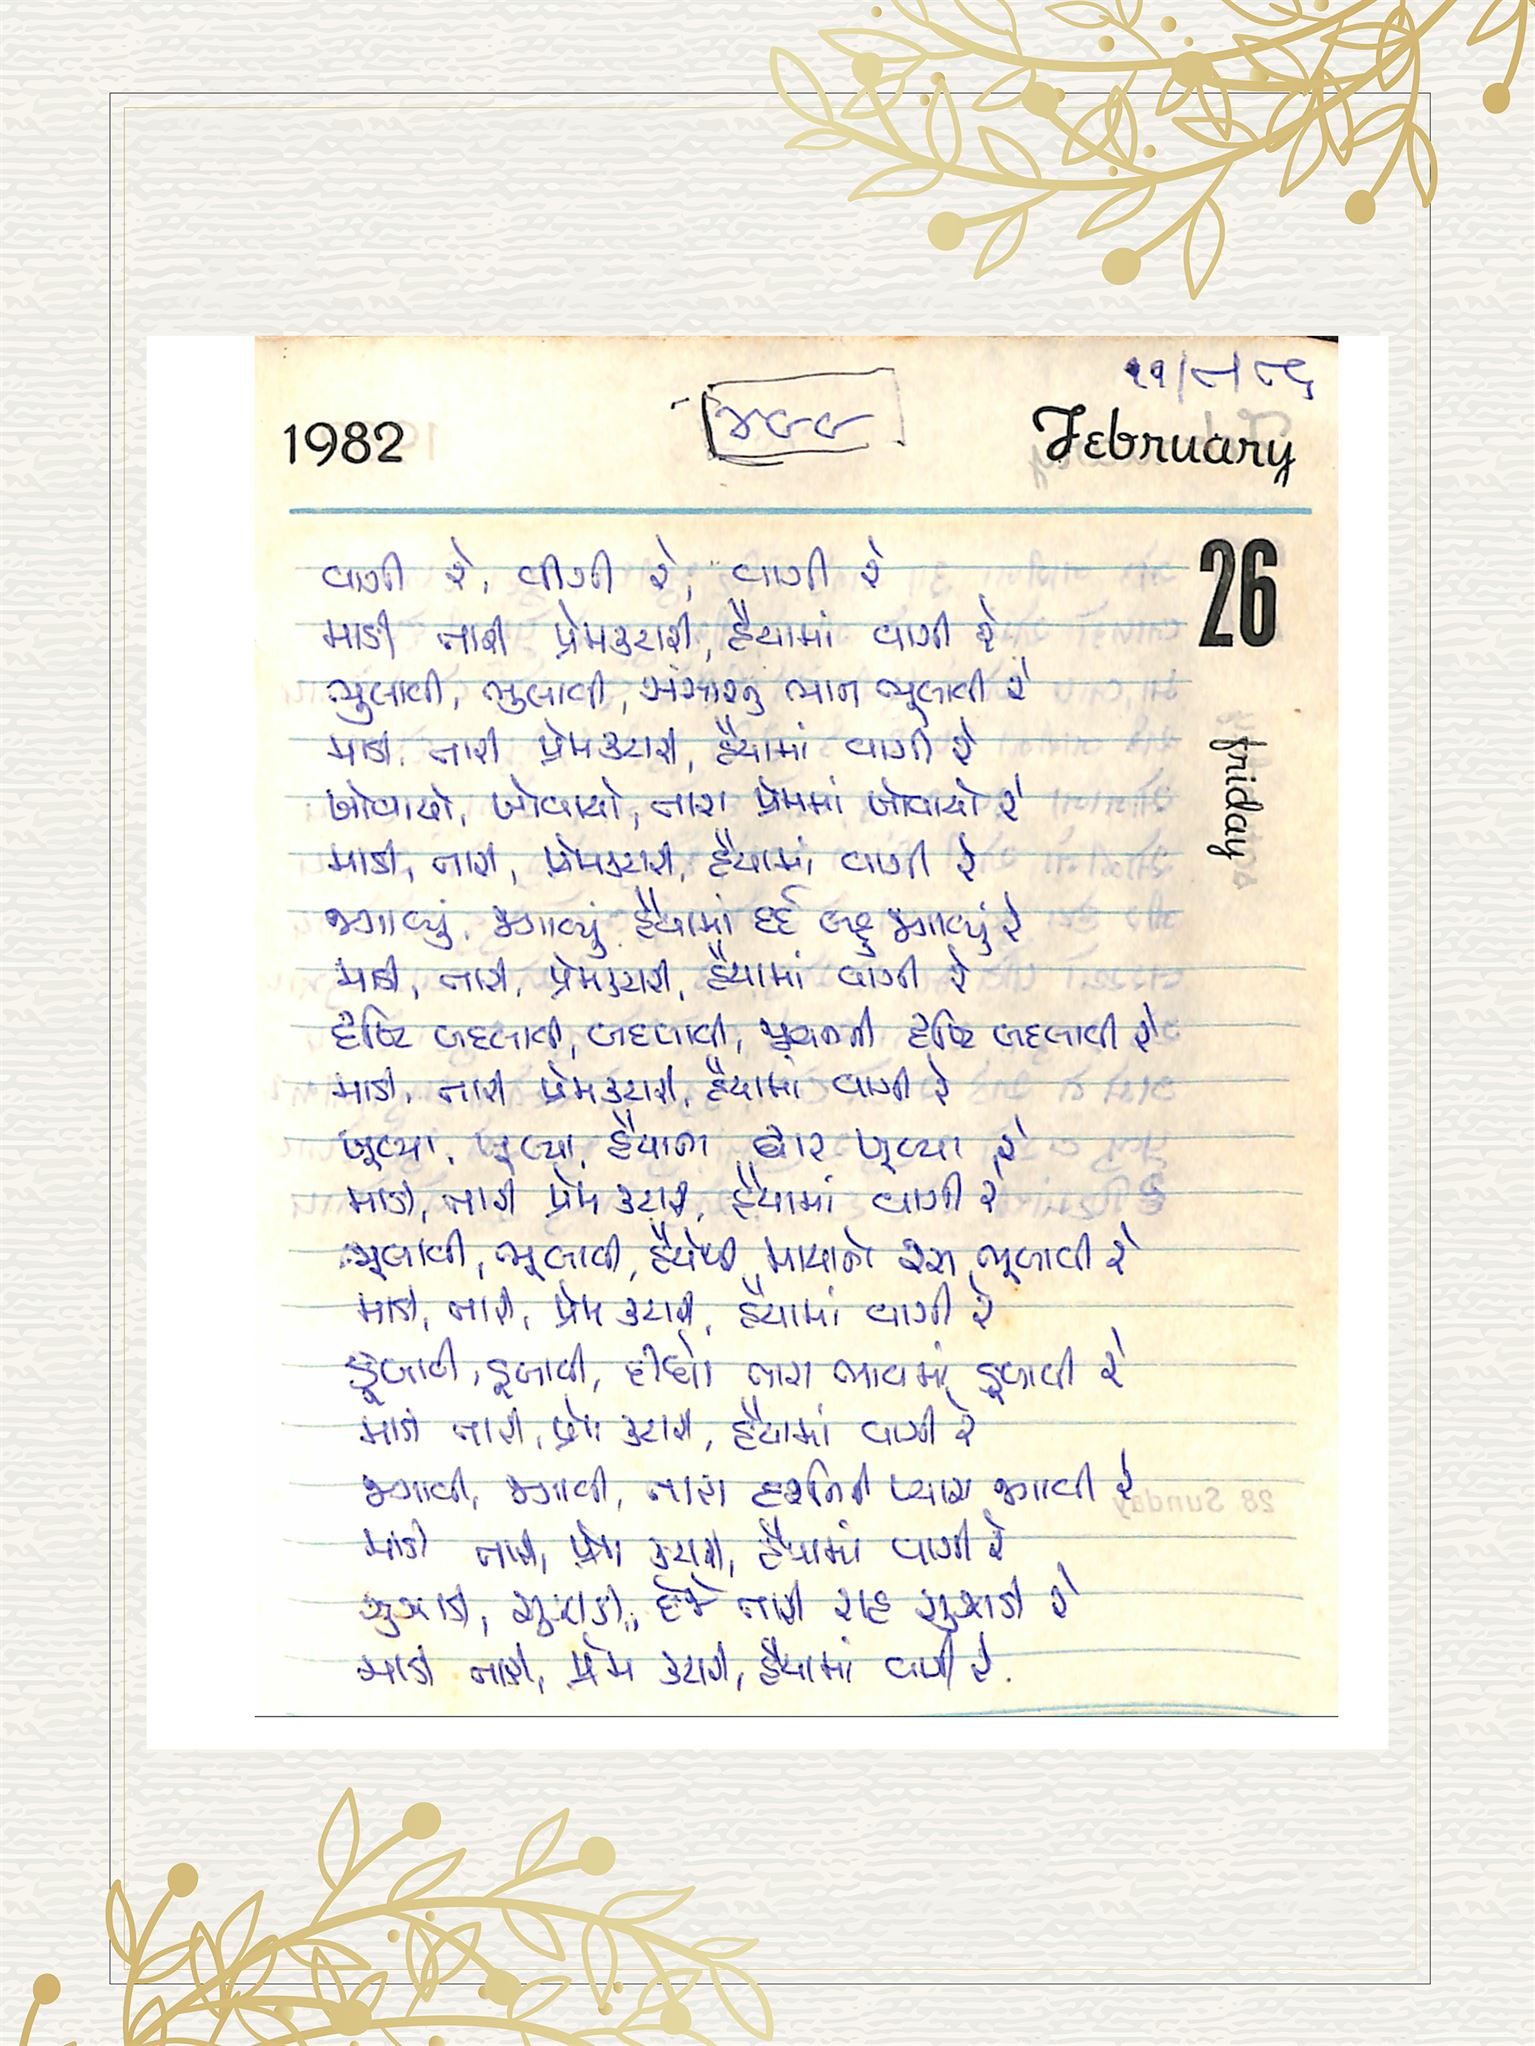 ૧૧/૮/૮૬
1982
૪૯૯
February
26
friday
વાગી રે, વાગી રે, વાગી રે
માડી તારી પ્રેમકટારી, હૈયામાં વાગી રે
ભુલાવી, ભુલાવી, સંસારનુ ભાન ભૂલાવી રે
માડી તારી પ્રેમકટારી, હૈયામાં વાગી રે
ખોવાયો, ખોવાયો, તારા પ્રેમમાં ખોવાયો રે
માડી, તારી, પ્રેમકટારી, હૈયામાં વાગી રે
જગાવ્યું, જગાવ્યું હૈયામાં દર્દ બહુ જગાવ્યું રે
માડી, તારી, પ્રેમકટારી, હૈયામાં વાગી રે
દૃષ્ટિ બદલાવી, બદલાવી, દૃષ્ટિ બદલાવી રે
માડી, તારી પ્રેમકટારી, હૈયામાં વાગી રે
ખૂલ્યા, ખૂલ્યા, હૈયાના દ્વાર ખૂલ્યા રે
માડી, તારી પ્રેમ કટારી, હૈયામાં વાગી રે
ભૂલાવી, ભૂલાવી, હૈયેથી માયાનો રસ ભૂલાવી રે
માડી, તારી, પ્રેમ કટારી, હૈયામાં વાગી રે
ડૂબાવી, ડૂબાવી, દીધો તારા ભાવમાં ડૂબાવી રે
માડી તારી, પ્રેમ કટારી, હૈયામાં વાગી રે
જગાવી, જગાવી, તારા દર્શનની પ્યાસ જગાવી રે
માડી તારી, પ્રેમ કટારી, હૈયામાં વાગી રે
સુઝાડી, સુઝાડી, દેજે તારી રાહ સુઝાડી રે
માડી તારી, પ્રેમ કટારી, હૈયામાં વાગી રે.